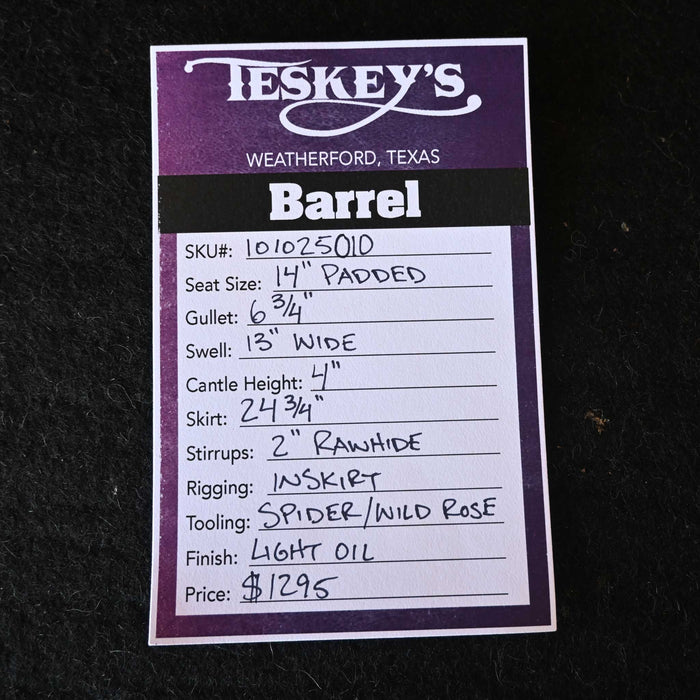 TESKEY'S
WEATHERFORD, TEXAS
Barrel
SKU#: 101025010
Seat Size: 14" PADDED
Gullet: 6 3/4"
Swell: 13" WIDE
Cantle Height: 4"
Skirt: 24 3/4"
Stirrups: 2" RAWHIDE
Rigging: INSKIRT
Tooling: SPIDER/WILD ROSE
Finish: LIGHT OIL
Price: $1295